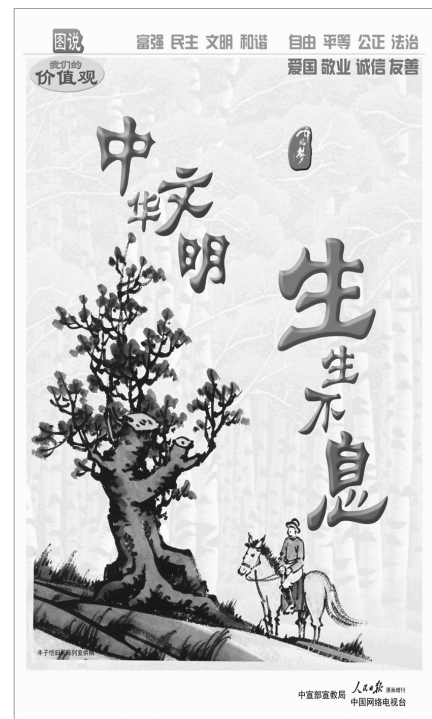 图说
我们的
价值观
富强 民主 文明 和谐 自由 平等 公正 法治
爱国 敬业 诚信 友善
中华文明
生生不息
丰子恺旧居陈列室供稿
中宣部宣教局
人民日报 漫画增刊
中国网络电视台